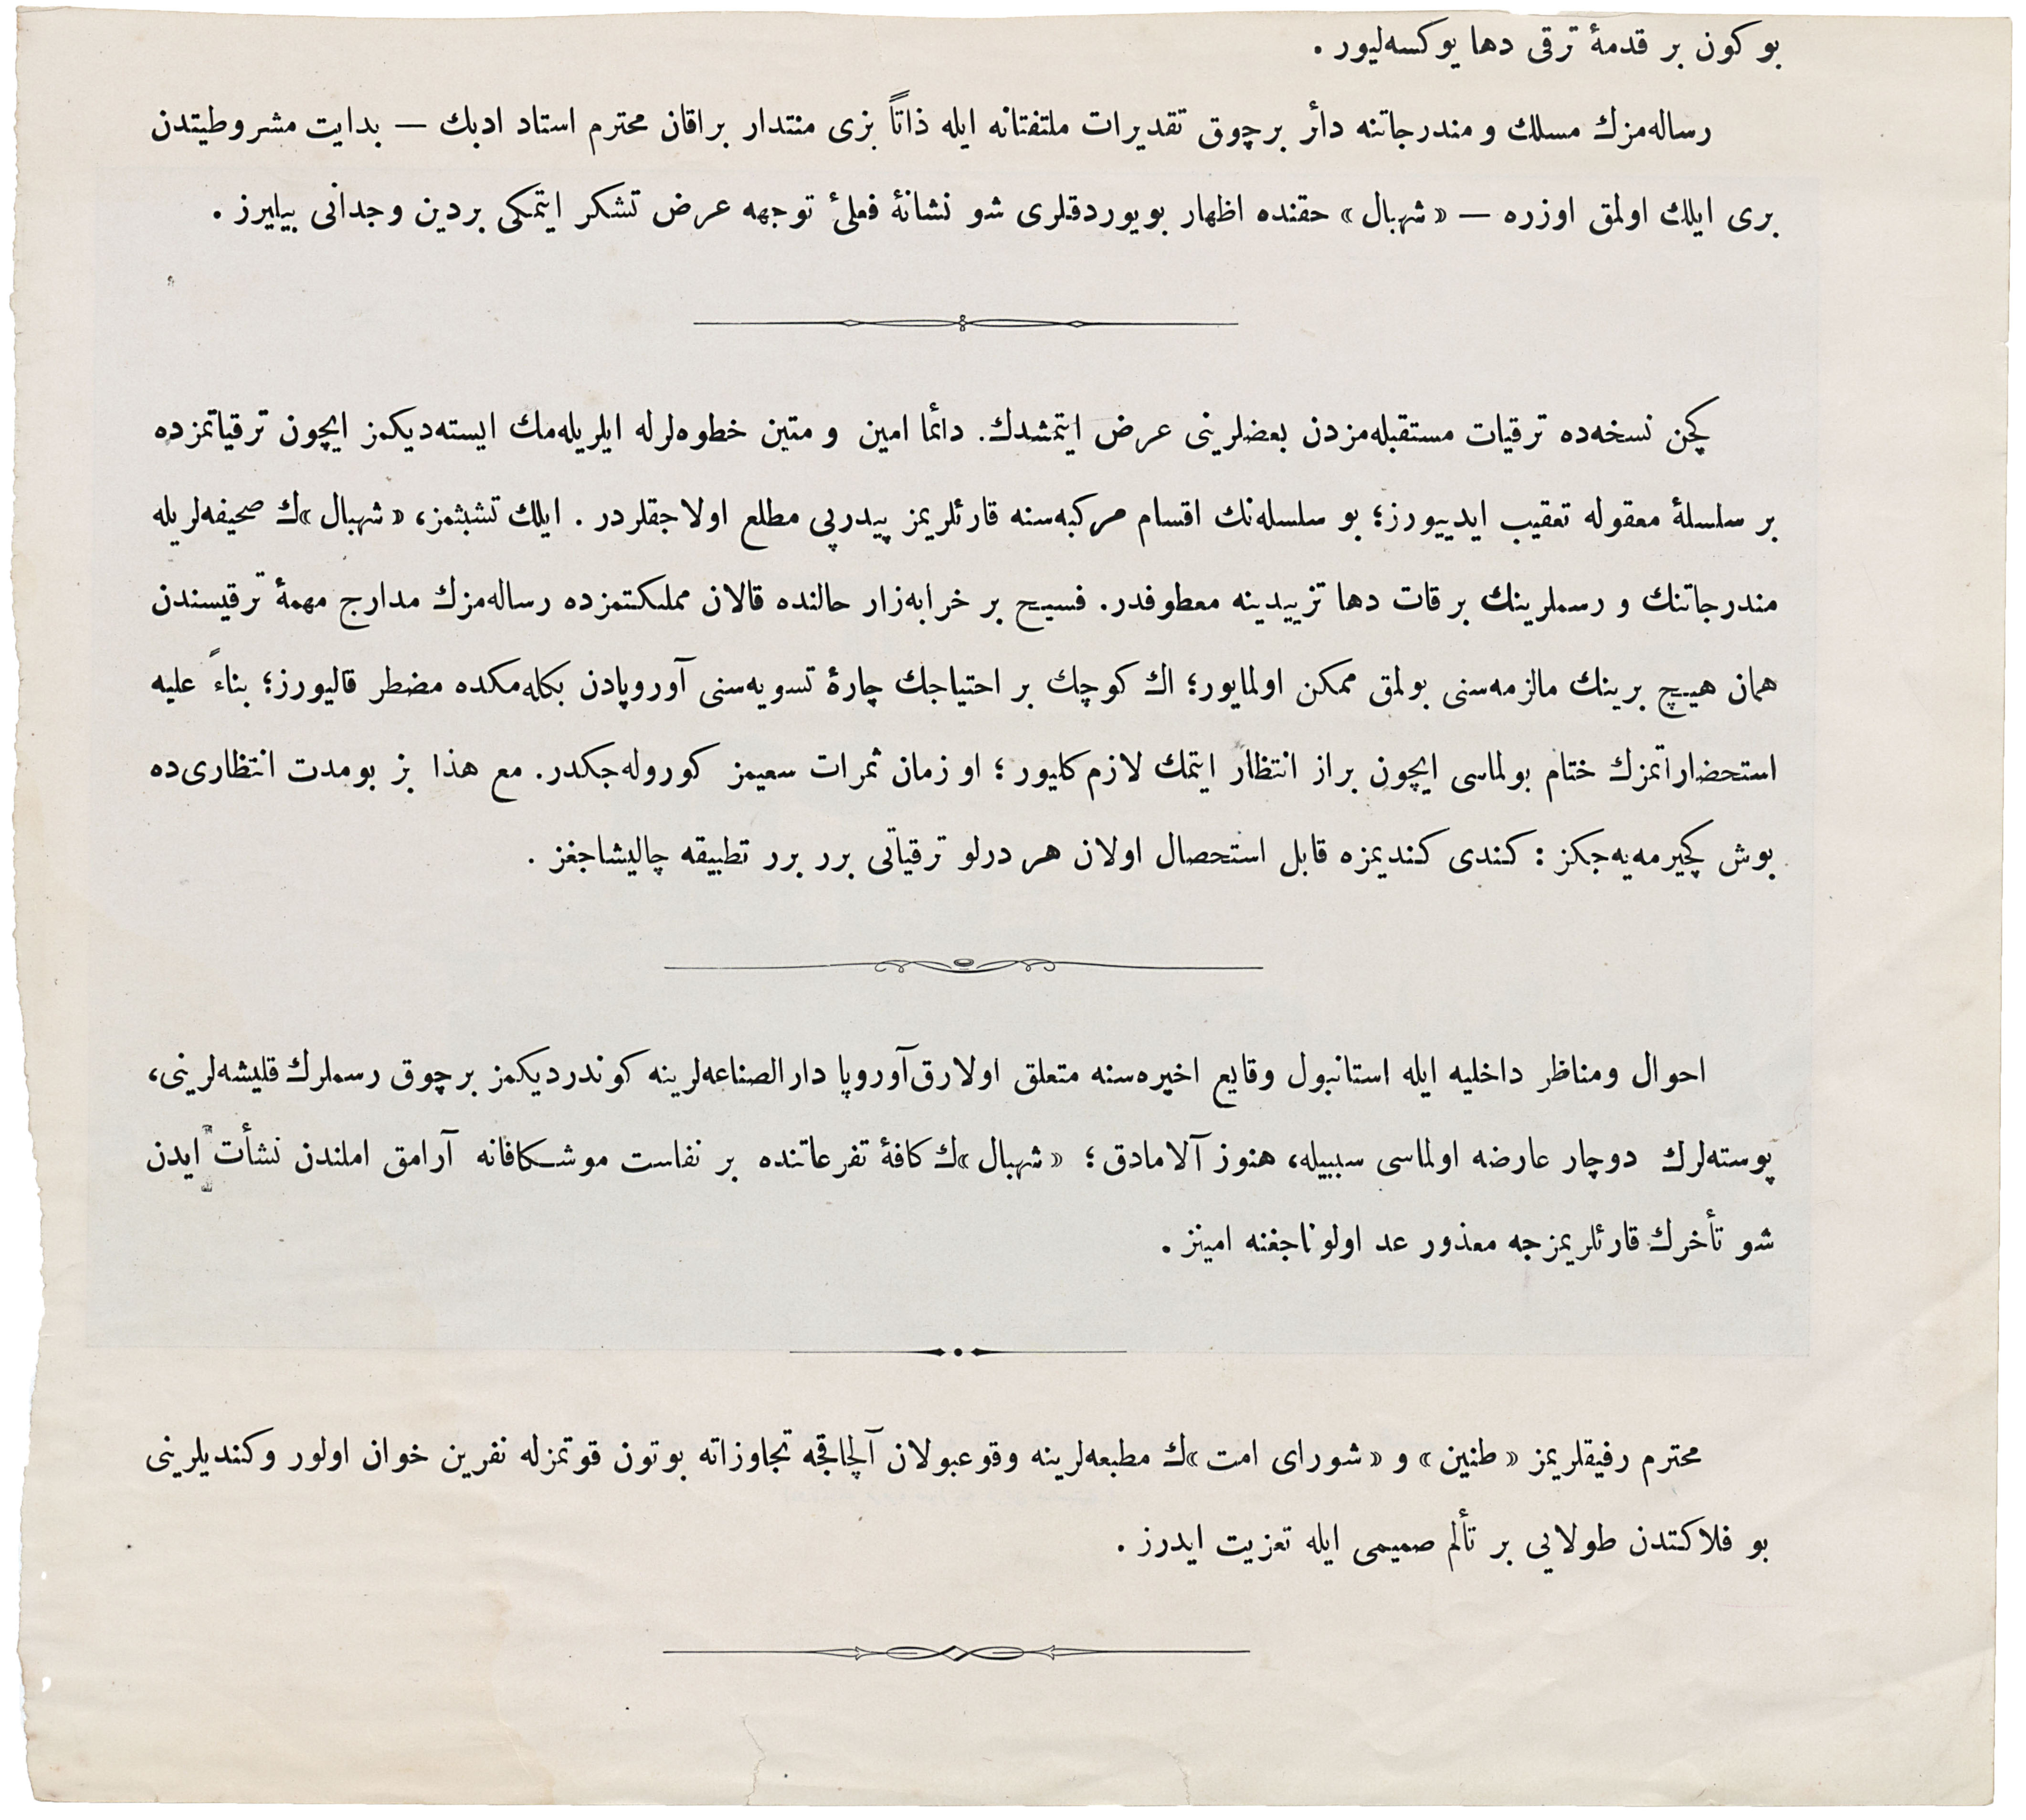 بو كون بر قدمهٔ ترقی دها یوكسه‌لیور .
رساله‌مزك مسلك و مندرجاتنه دائر برچوق تقدیرات ملتفتانه ایله ذاتاً بزی منتدار براقان محترم استاد ادبك — بدایت مشروطیتدن
بری ایلك اولمق اوزره — «شهبال» حقنده اظهار بویوردقلری شو نشانهٔ فعلیٔ توجهه عرض تشكر ایتمكی بردین وجدانی بیلیرز .
كچن نسخه‌ده ترقیات مستقبله‌مزدن بعضلرینی عرض ایتمشدك. دائما امین و متین خطوه‌لرله ایلریله‌مك ایسته‌دیكمز ایچون ترقیاتمزده
بر سلسلهٔ معقوله تعقیب ایدییورز؛ بو سلسله‌نك اقسام مركبه‌سنه قارئلریمز پیدرپی مطلع اولاجقلردر . ایلك تشبثمز، «شهبال»ك صحیفه‌لریله
مندرجاتنك و رسملرینك برقات دها تزییدینه معطوفدر. فسیح بر خرابه‌زار حالنده قالان مملكتمزده رساله‌مزك مدارج مهمهٔ ترقیسندن
همان هیچ برینك مالزمه‌سنی بولمق ممكن اولمایور؛ اك كوچك بر احتیاجك چارهٔ تسویه‌سنی آوروپادن بكله‌مكده مضطر قالیورز؛ بناءً علیه
استحضاراتمزك ختام بولماسی ایچون براز انتظار ایتمك لازم‌كلیور؛ او زمان ثمرات سعیمز كوروله‌جكدر. مع هذا بز بومدت انتظاری‌ده
بوش كچیرمه‌یه‌جكز : كندی كندیمزه قابل استحصال اولان هر درلو ترقیاتی برر برر تطبیقه چالیشاجغز .
احوال ومناظر داخلیه ایله استانبول وقایع اخیره‌سنه متعلق اولارق‌آوروپا دارالصناعه‌لرینه كوندردیكمز برچوق رسملرك قلیشه‌لرینی،
پوسته‌لرك دوچار عارضه اولماسی سببیله، هنوز آلامادق؛ «شهبال»ك كافهٔ تفرعاتنده بر نفاست موشكافانه آرامق املندن نشأت ایدن
شو تأخرك قارئلریمزجه معذور عد اولوناجغنه امینز .
محترم رفیقلریمز «طنین» و «شورای امت»ك مطبعه‌لرینه وقوعبولان آلچاقجه تجاوزاته بوتون قوتمزله نفرین خوان اولور وكندیلرینی
بو فلاكتدن طولایی بر تألم صمیمی ایله تعزیت ایدرز .